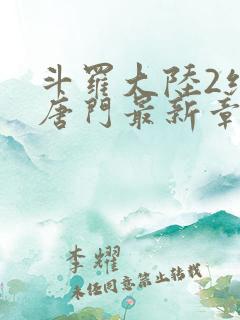 斗羅大陸2
唐門最新章
李耀
未经同意禁止转载